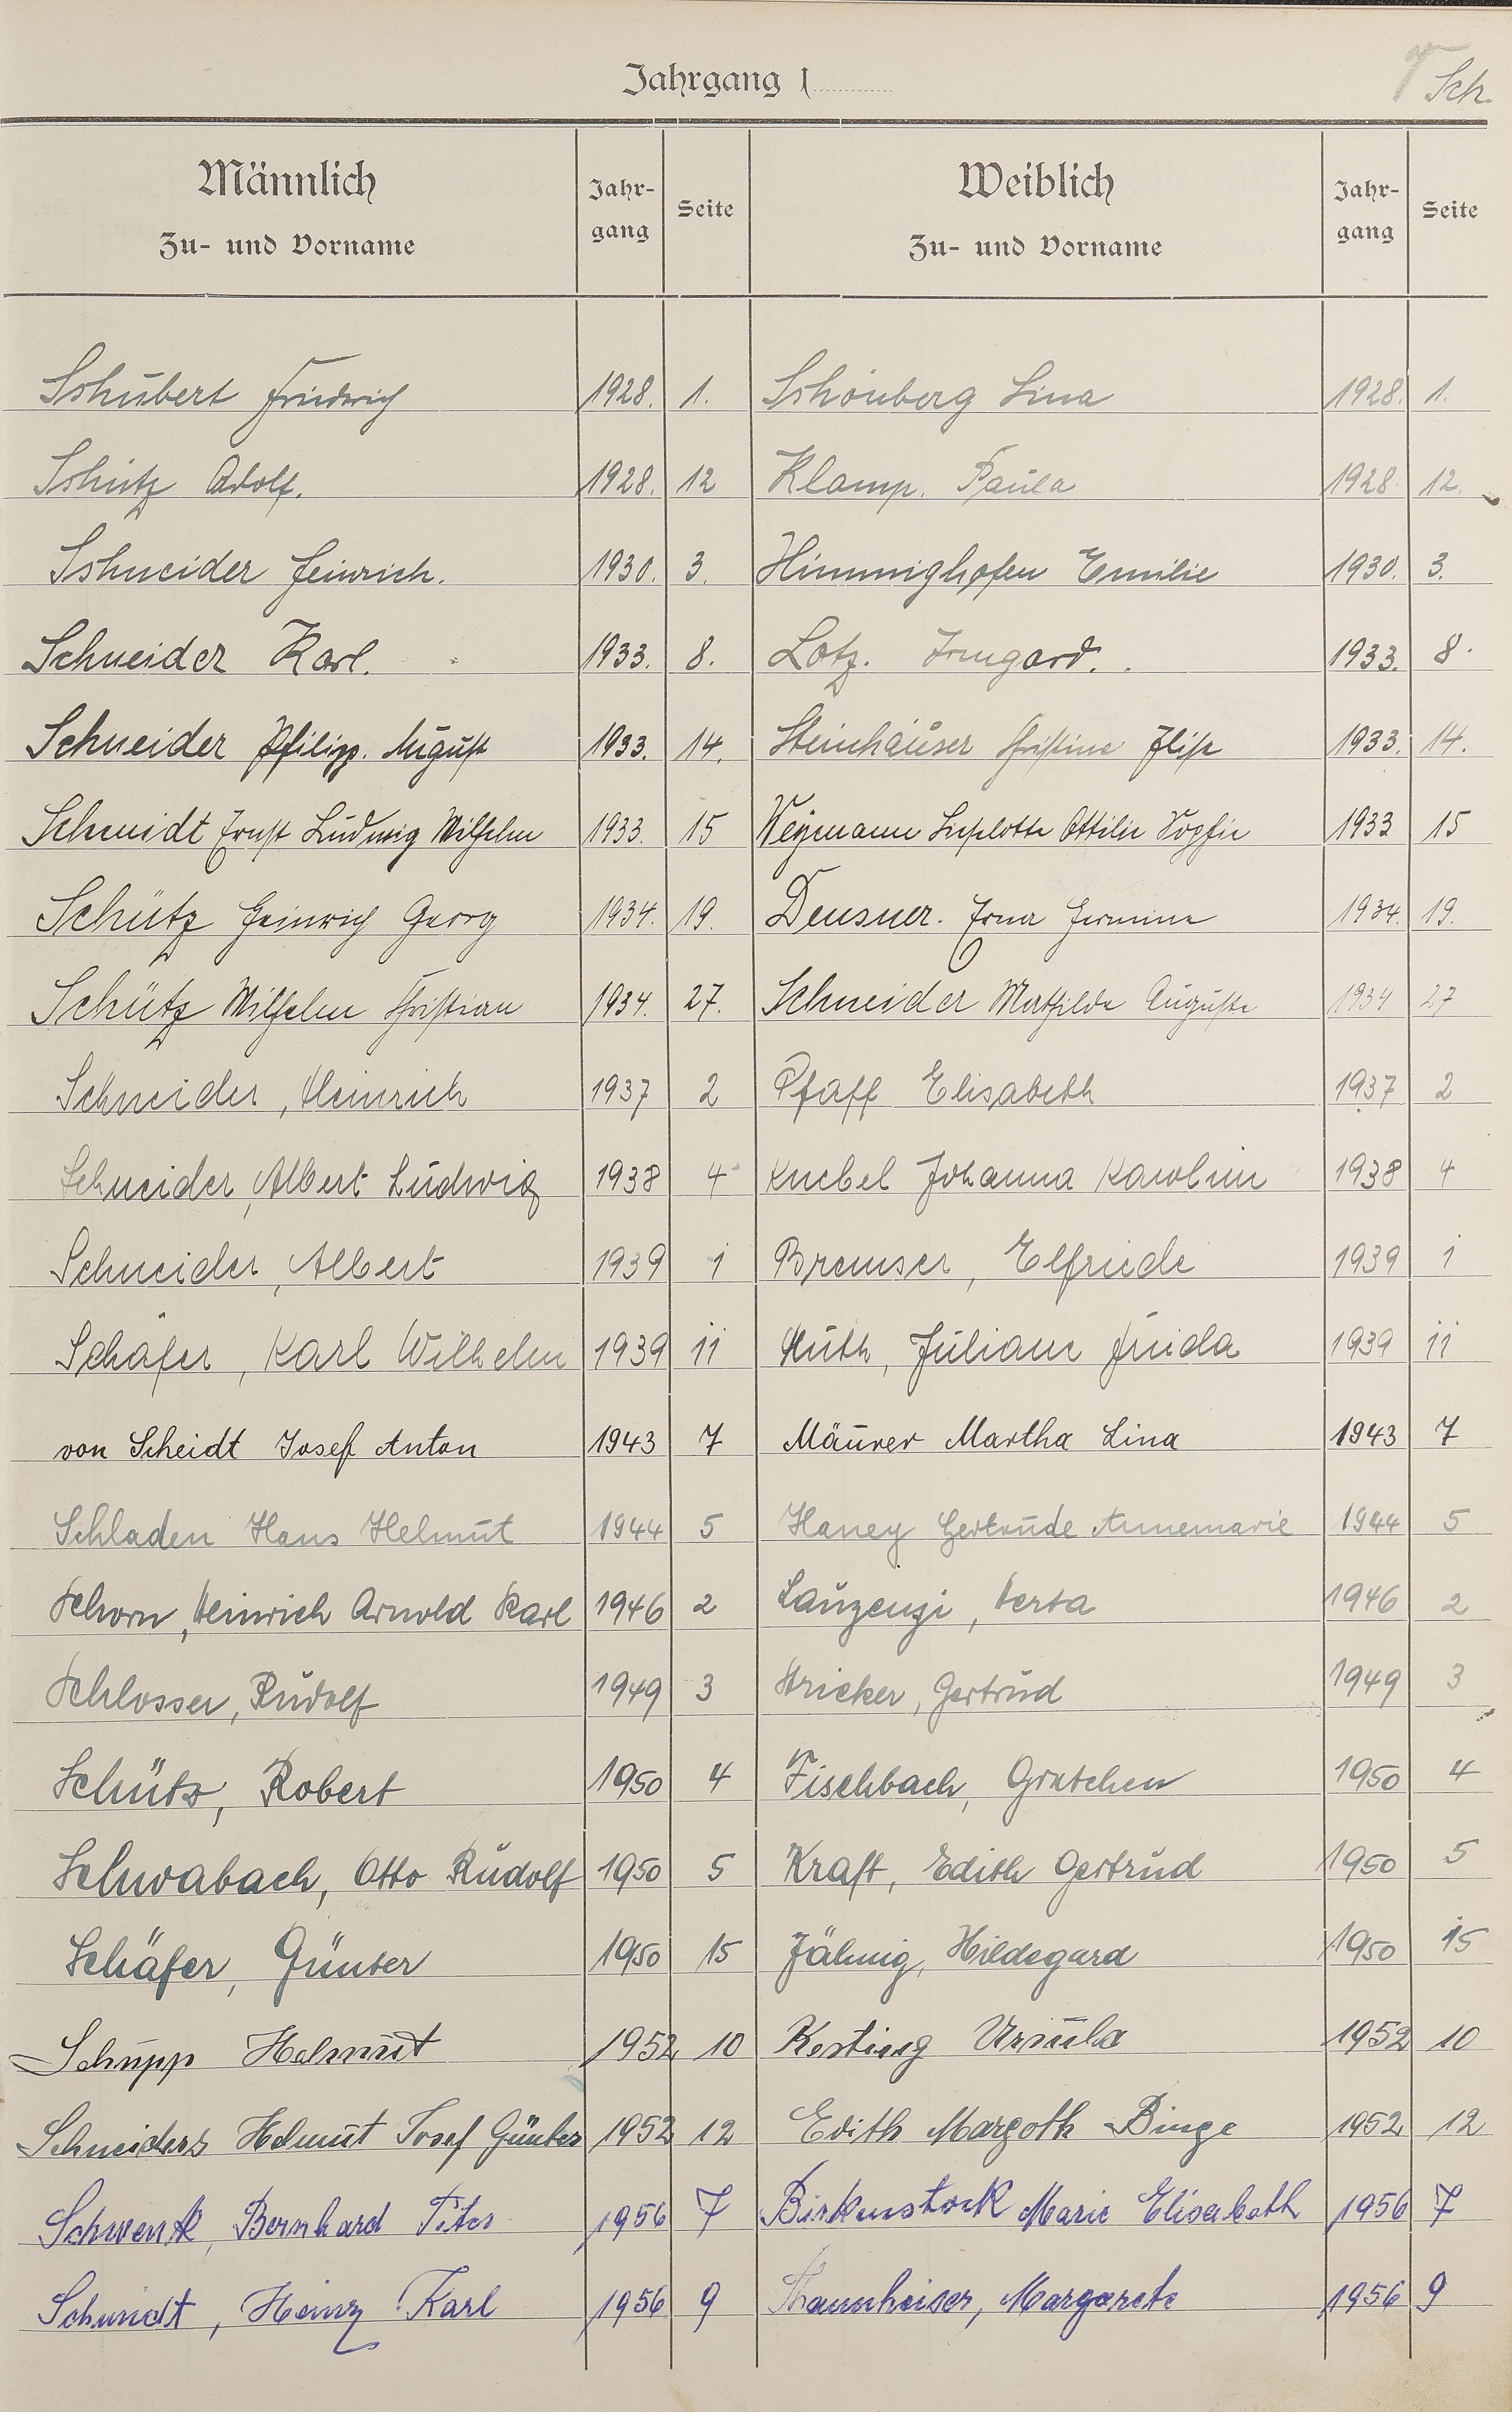 Jahrgang 1
Sch.
Männlich Zu- und Vorname Jahr-gang Seite Weiblich Zu- und Vorname Jahr-gang Seite
Schubert Friedrich 1928. 1. Schönberg Lina 1928. 1.
Schütz Adolf. 1928. 12 Klamp. Paula 1928. 12.
Schneider Heinrich. 1930. 3. Himmighofen Emilie 1930. 3.
Schneider Karl. 1933. 8. Lotz. Irmgard. 1933. 8.
Schneider Philipp. August 1933. 14. Steinhäuser Christine Elise 1933. 14.
Schmidt Ernst Ludwig Wilhelm 1933. 15 Weymann Liselotte Ottilie Sophie 1933 15
Schütz Heinrich Georg 1934. 19. Deusner. Erna Hermine 1934. 19.
Schütz Wilhelm Christian 1934. 27. Schneider Mathilde Auguste 1934 27
Schneider, Heinrich 1937 2 Pfaff Elisabeth 1937 2
Schneider, Albert Ludwig 1938 4 Knebel Johanna Karolin 1938 4
Schneider, Albert 1939 1 Bremser, Elfriede 1939 1
Schäfer, Karl Wilhelm 1939 11 Huth, Juliane Frieda 1939 11
von Scheidt Josef Anton 1943 7 Mäurer Martha Lina 1943 7
Schladen Hans Helmut 1944 5 Haney Gertrude Annemarie 1944 5
Schorn, Heinrich Arnold Karl 1946 2 Herta 1946 2
Schlosser, Rudolf 1949 3 Stricker, Gertrud 1949 3
Schütz, Robert 1950 4 Fischbach, Gretchen 1950 4
Schwabach, Otto Rudolf 1950 5 Kraft, Edith Gertrud 1950 5
Schäfer, Günter 1950 15 Jähnig, Hildegard 1950 15
Schupp Helmut 1952 10 Kesting Ursula 1952 10
Schneiders Helmut Josef Günter 1952 12 Edith Margoth Binge 1952 12
Schwenk, Bernhard Peter 1956 7 Birkenstock Marie Elisabeth 1956 7
Schmidt, Heinz Karl 1956 9 Thannheiser, Margarete 1956 9